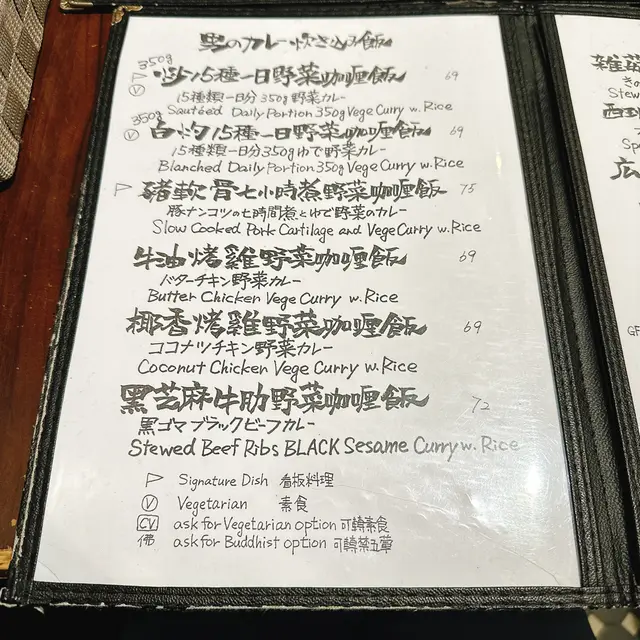 男のカレー炊き込み飯
350g
炒15種一日野菜咖喱飯 69
Ⓥ 15種類一日分350g野菜カレー
Sautéed Daily Portion 350g Vege Curry w. Rice
350g
Ⓥ 白灼15種一日野菜咖喱飯 69
15種類一日分350gゆで野菜カレー
Blanched Daily Portion 350g Vege Curry w. Rice
豬軟骨七小時煮野菜咖喱飯 75
豚ナンコツの七時間煮とゆで野菜のカレー
Slow Cooked Pork Cartilage and Vege Curry w. Rice
牛油烤雞野菜咖喱飯 69
バターチキン野菜カレー
Butter Chicken Vege Curry w. Rice
椰香烤雞野菜咖喱飯 69
ココナツチキン野菜カレー
Coconut Chicken Vege Curry w. Rice
黑芝麻牛肋野菜咖喱飯 72
黒ゴマブラックビーフカレー
Stewed Beef Ribs BLACK Sesame Curry w. Rice
Signature Dish 看板料理
Ⓥ Vegetarian 素食
CV ask for Vegetarian option 可轉素食
佛 ask for Buddhist option 可轉茶五葷
きの
Stew
Sp
広
GF